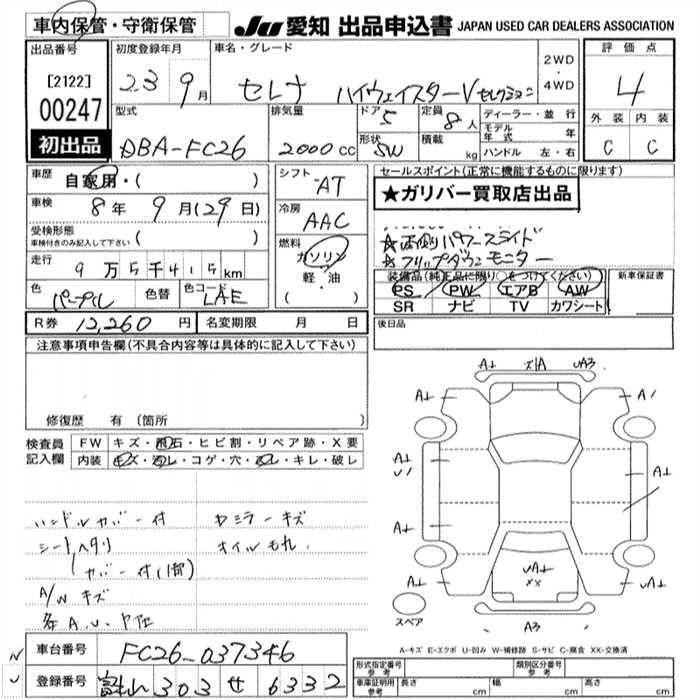 車内保管・守衛保管
JU 愛知 出品申込書 JAPAN USED CAR DEALERS ASSOCIATION
出品番号
[2122]
00247
初出品
初度登録年月
23 9月
車名・グレード
セレナ ハイウェイスターV セレクション
2WD
・
4WD
評価点
4
外装 内装
C C
型式
DBA-FC26
排気量
2000cc
ドア
5
形状
SW
定員
8人
積載
kg
ディーラー・並行
モデル年式 年
ハンドル 左・右
車歴
自家用・( )
車検
8年 9月(29日)
受検形態
車検付きのみ記入して下さい ( )
走行
9万5千415km
色
パープル
色替
色コード
LAE
シフト
AT
冷房
AAC
燃料
ガソリン
軽・油
( )
R券 12,260円
名変期限 月 日
セールスポイント(正常に機能するものに限ります)
★ガリバー買取店出品
★両側パワースライド
★フリップダウンモニター
装備品(純正品に限り○をつけてください)
PS PW エアB AW
SR ナビ TV カワシート
新車保証書
後日品
注意事項申告欄(不具合内容等は具体的に記入して下さい)
修復歴 有 (箇所
検査員
記入欄
FW キズ・飛石・ヒビ割・リペア跡・X要
内装 キズ・汚レ・コゲ・穴・スレ・キレ・破レ
ハンドルカバー付 Rミラーキズ
シートヘタリ オイルもれ
(カバー付(1部)
A/Wキズ
各A.U.
A1 XIA UA3
A1 A1
A1
U1
A1
A1
A1
UA1
XX
UA1
A3
スペア
A-キズ E-エクボ U-凹み W-補修跡 S-サビ C-腐食 XX-交換済
車台番号 FC26-037346
登録番号 富山 303 せ 6332
形式指定番号
参考
類別区分番号
参考
車庫証明用
参考
長さ cm 幅 cm 高さ cm